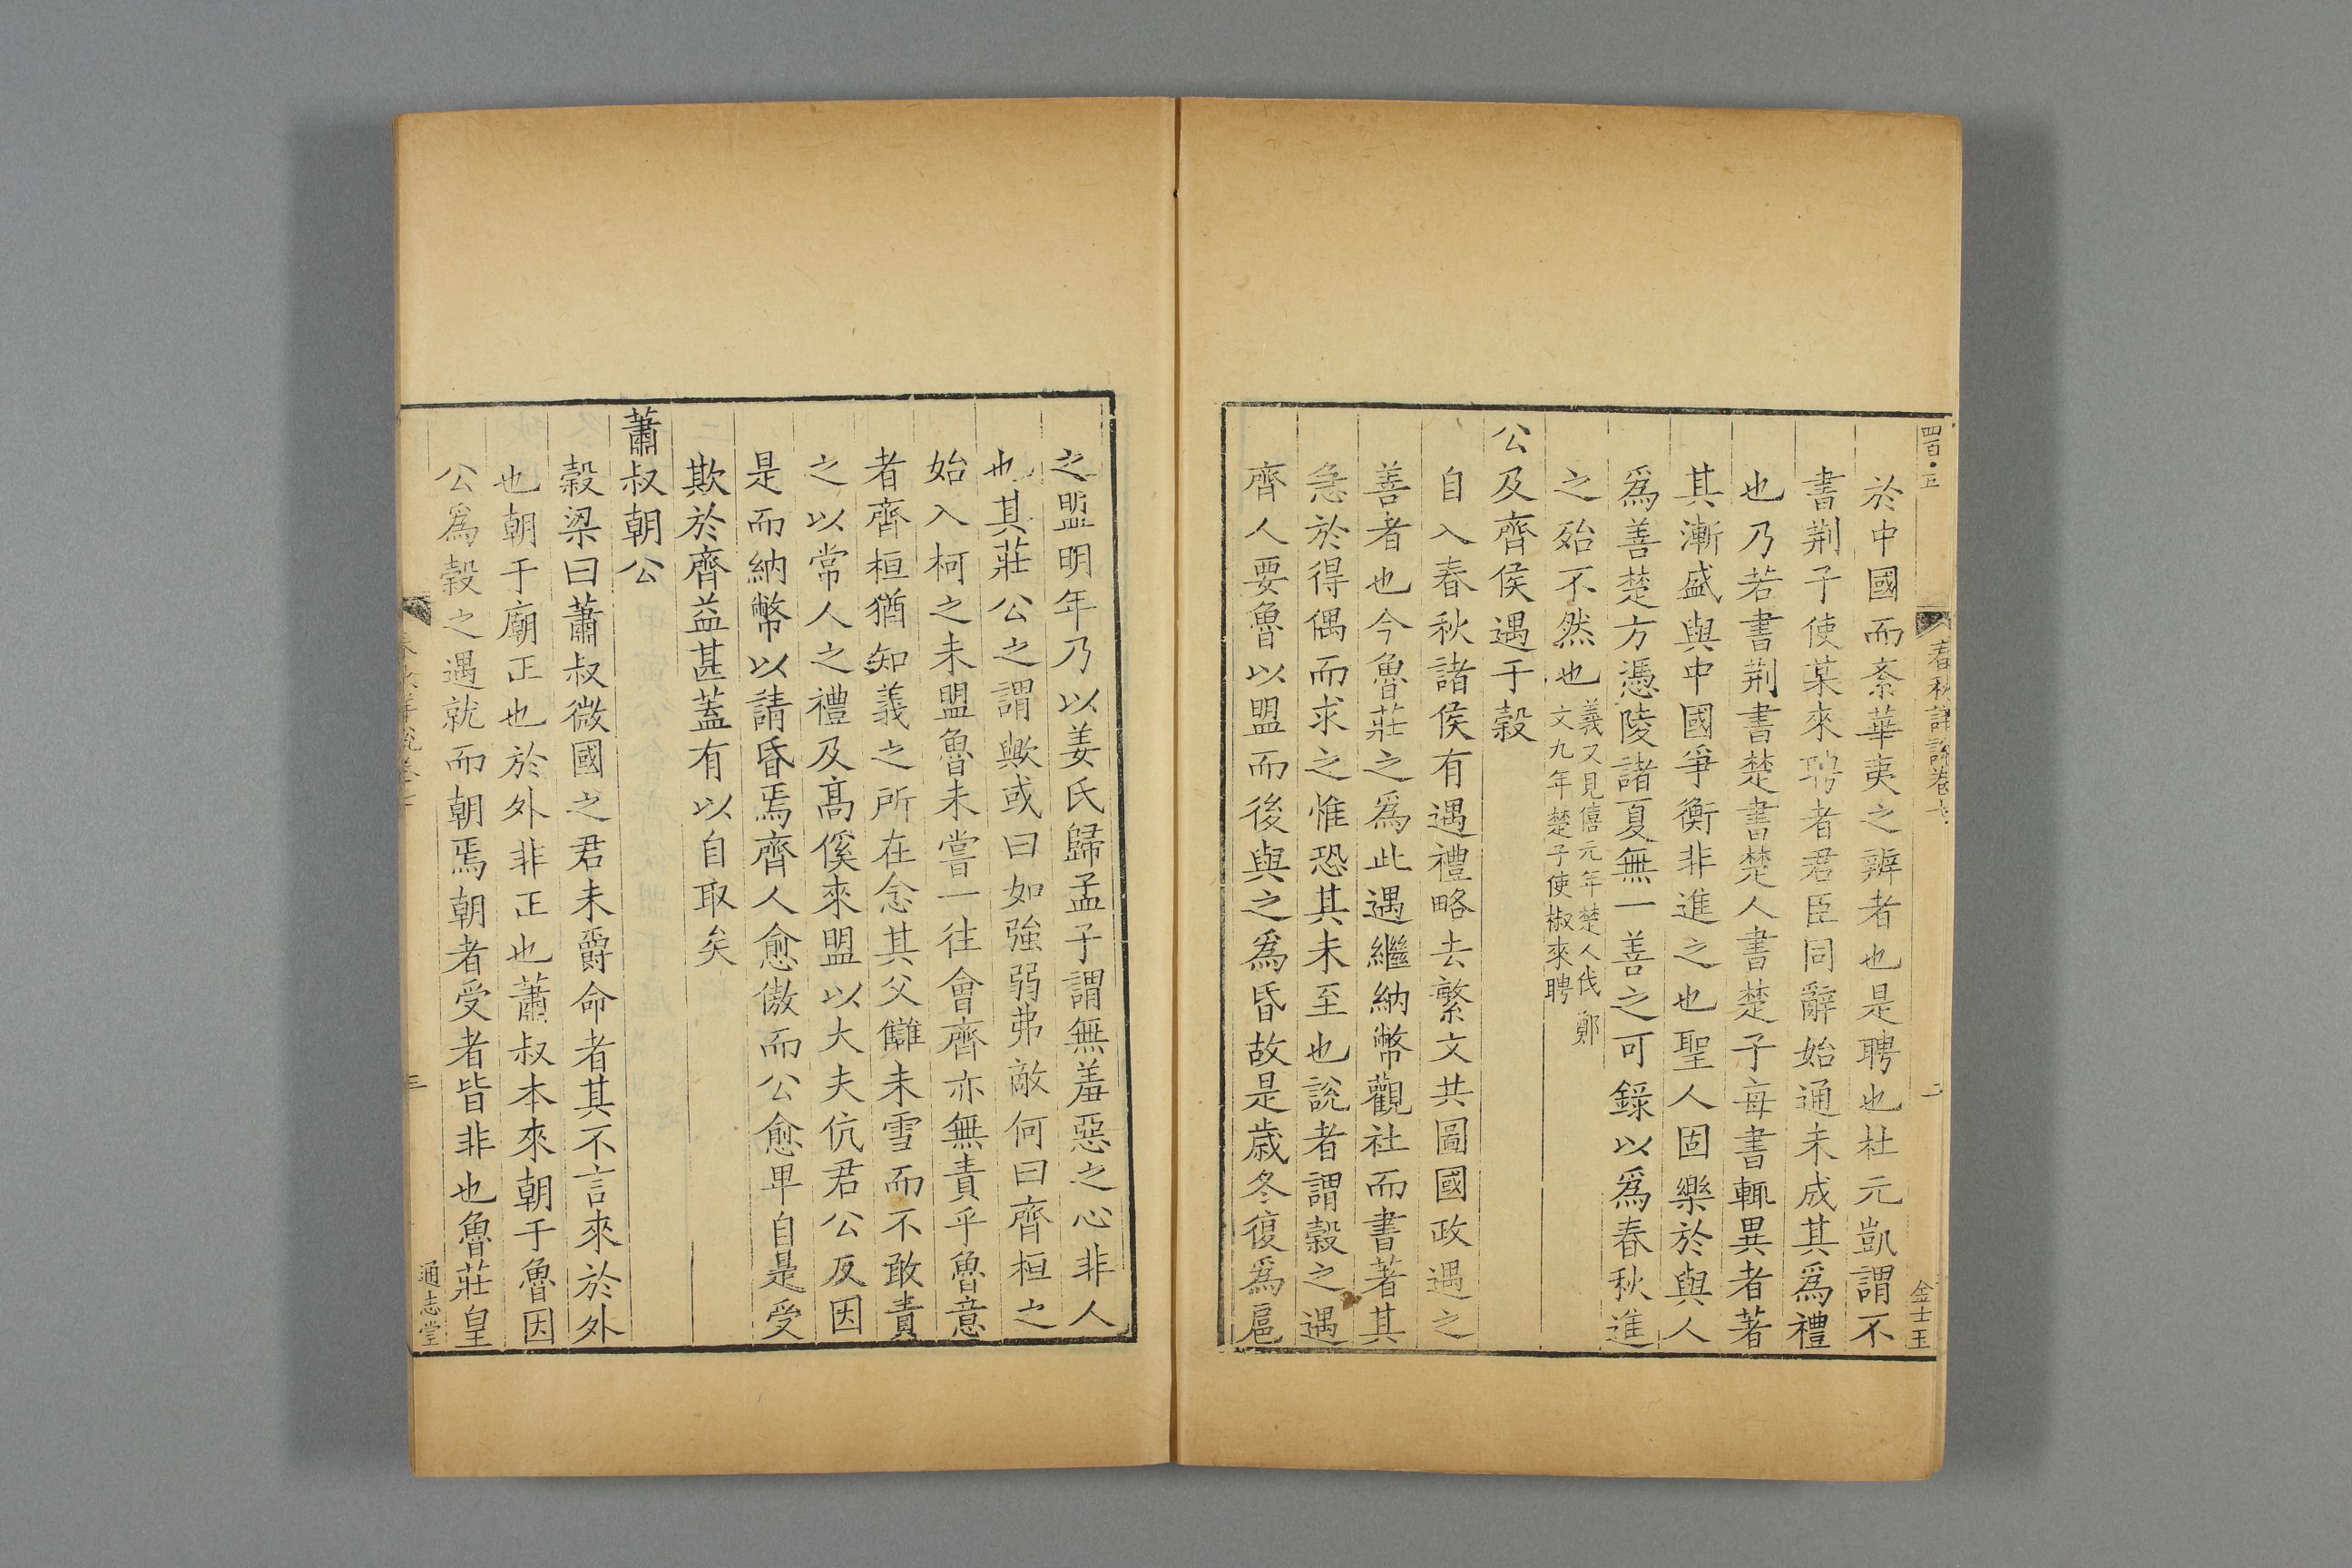 四百·五
春秋詳說卷七
二
金士玉
於中國而紊華夷之辨者也是聘也杜元凱謂不
書荆子使某來聘者君臣同辭始通未成其爲禮
也乃若書荆書楚書楚人書楚子每書輒異者著
其漸盛與中國爭衡非進之也聖人固樂於與人
爲善楚方憑陵諸夏無一善之可錄以爲春秋進
之殆不然也
義又見僖元年楚人伐鄭
文九年楚子使椒來聘
公及齊侯遇于穀
自入春秋諸侯有遇禮略去繁文共圖國政遇之
善者也今魯莊之爲此遇繼納幣觀社而書著其
急於得偶而求之惟恐其未至也說者謂穀之遇
齊人要魯以盟而後與之爲昏故是歲冬復爲扈
之盟明年乃以姜氏歸孟子謂無羞惡之心非人
也其莊公之謂歟或曰如強弱弗敵何曰齊桓之
始入柯之未盟魯未嘗一往會齊亦無責乎魯意
者齊桓猶知義之所在念其父讎未雪而不敢責
之以常人之禮及高傒來盟以大夫伉君公反因
是而納幣以請昏焉齊人愈傲而公愈卑自是受
欺於齊益甚蓋有以自取矣
蕭叔朝公
穀梁曰蕭叔微國之君未爵命者其不言來於外
也朝于廟正也於外非正也蕭叔本來朝于魯因
公爲穀之遇就而朝焉朝者受者皆非也魯莊皇
三
通志堂